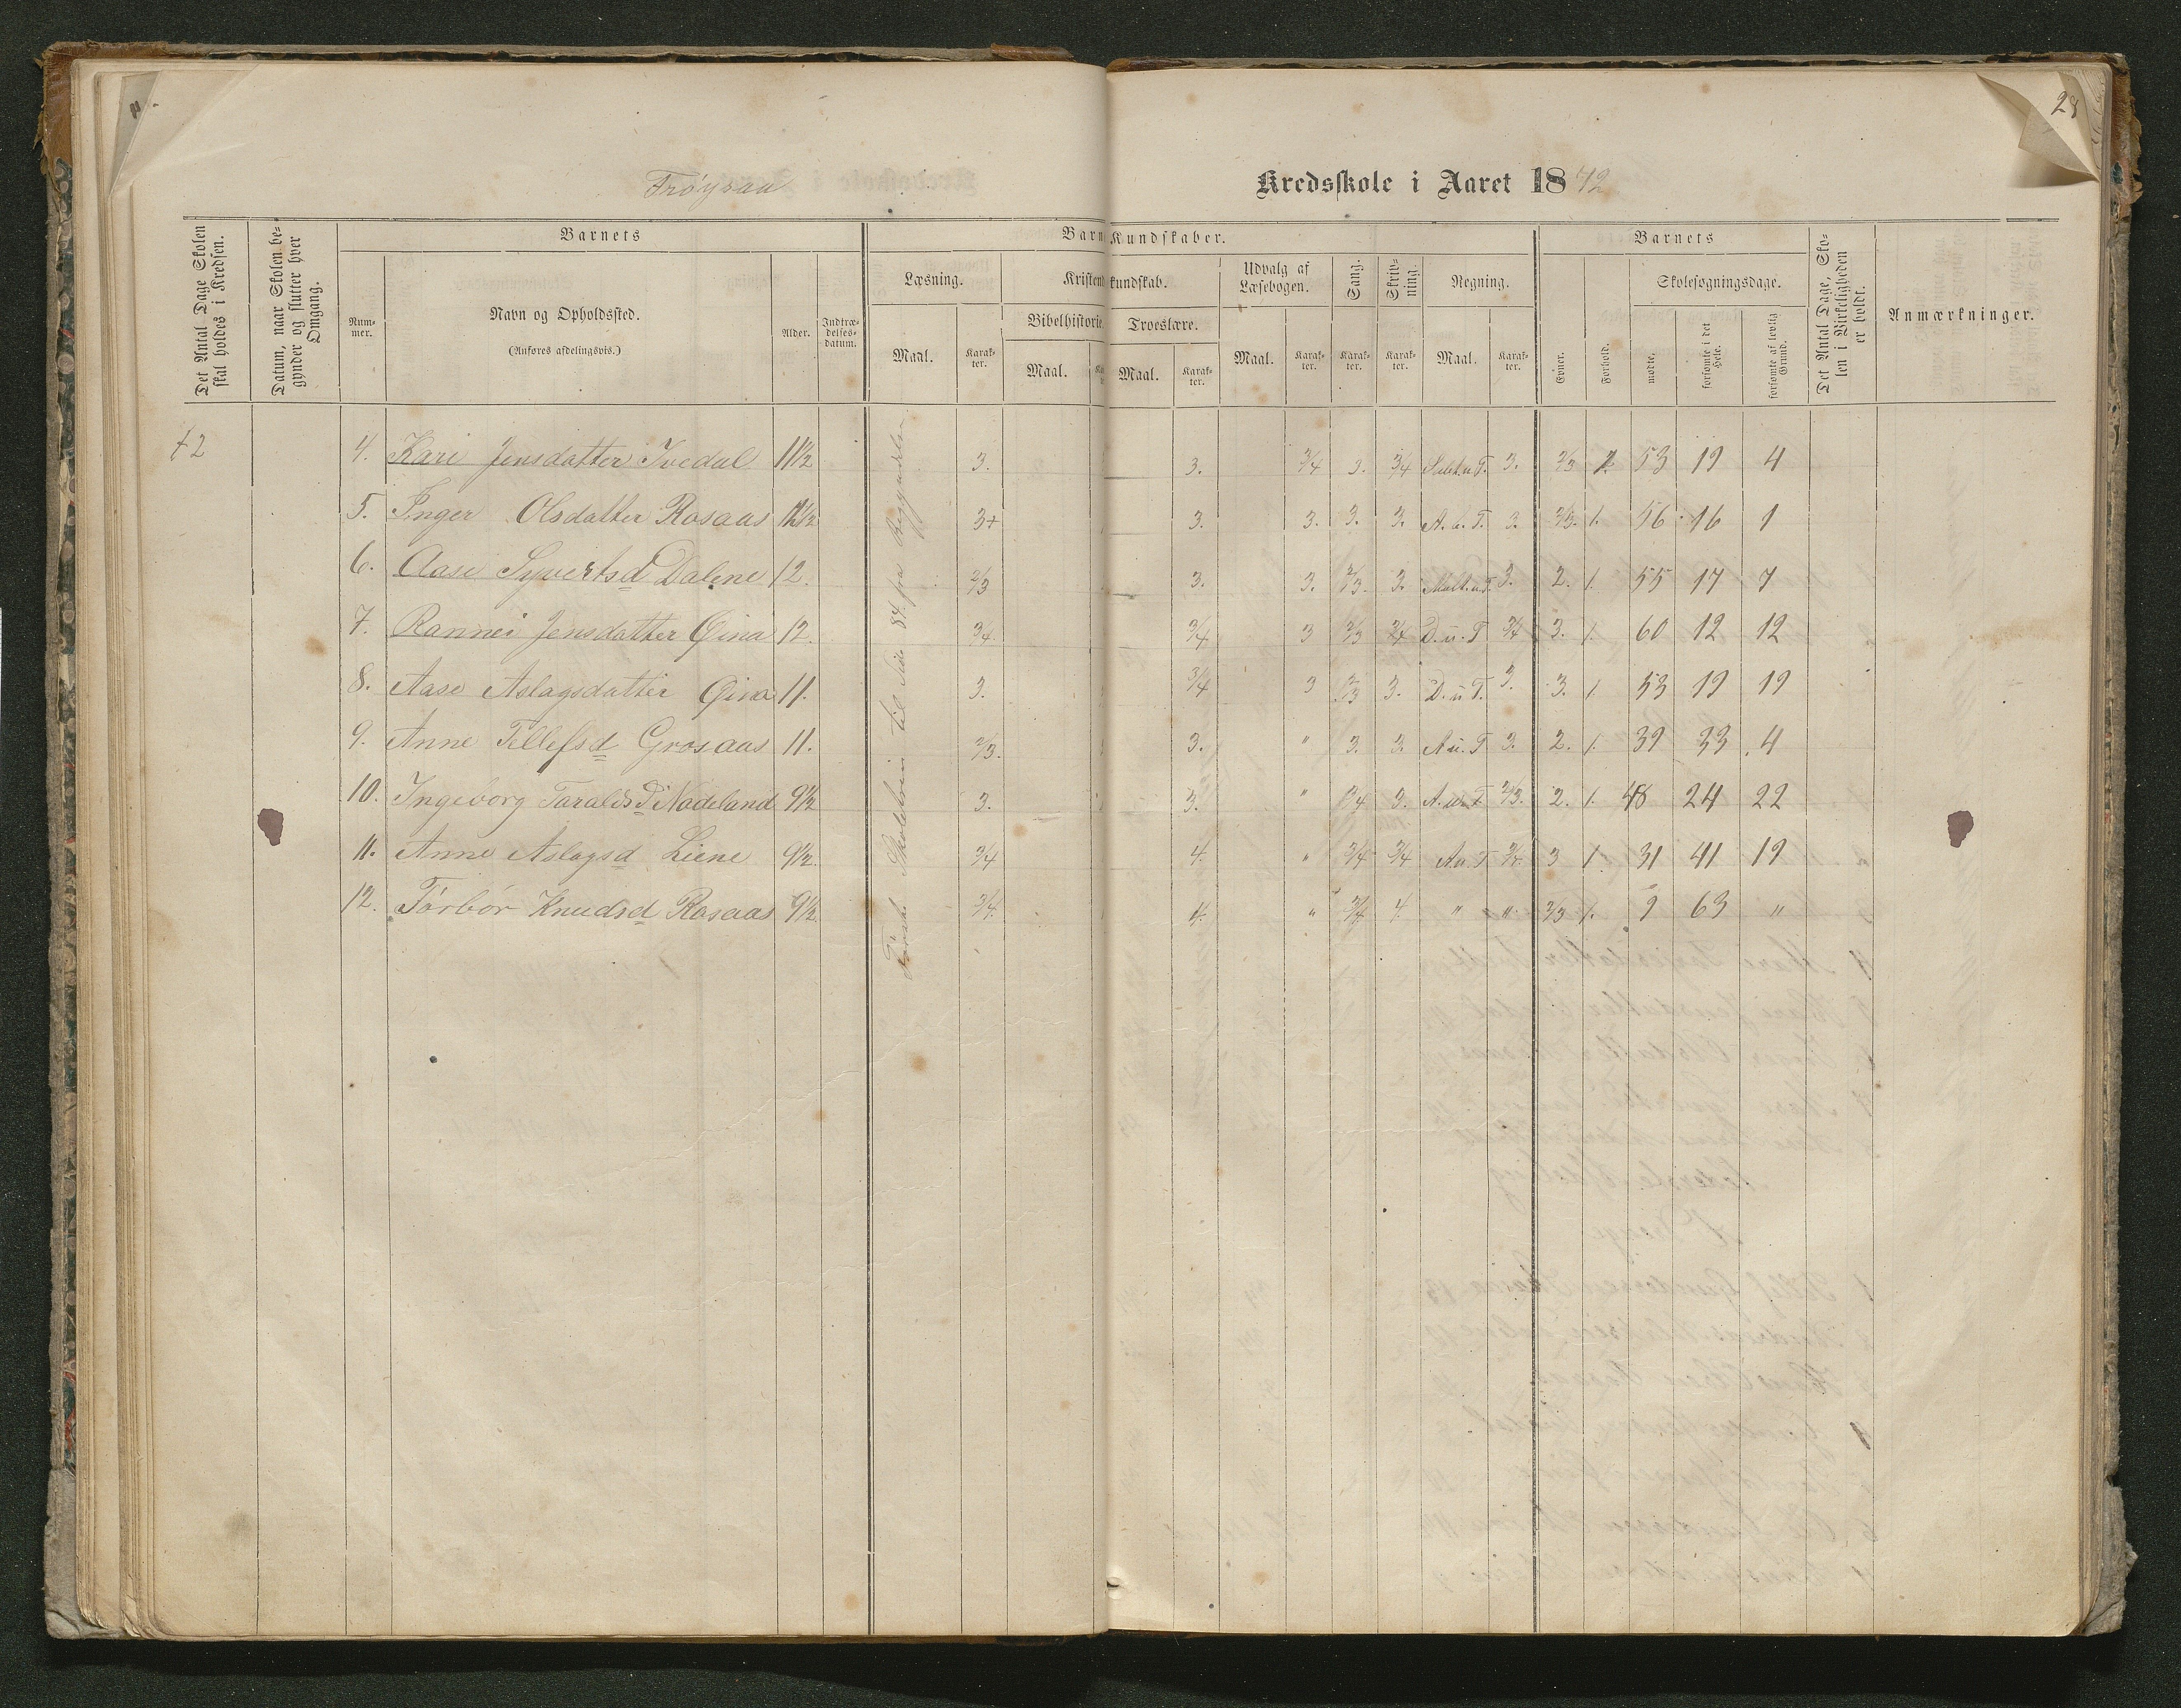 28
Frøysaa Kredsskole i Aaret 1872
Det Antal Dage Skolen skal holdes i Kredsen.
Datum, naar Skolen begynder og slutter hver Omgang.
Barnets
Barnets Kundskaber.
Barnets
Det Antal Dage, Skolen i Virkeligheden er holdt.
Anmærkninger.
Nummer.
Navn og Opholdssted.
(Anføres afdelingsvis.)
Alder.
Indtrædelsesdatum.
Læsning.
Kristendomskundskab.
Udvalg af Læsebogen.
Sang.
Skrivning.
Regning.
Skolesøgningsdage.
Bibelhistorie.
Troeslære.
Maal.
Karakter.
Maal.
Maal.
Karakter.
Maal.
Karakter.
Karakter.
Karakter.
Maal.
Karakter.
Evner.
Forhold.
mødte.
forsømte i det Hele.
forsømte af lovlig Grund.
72
4. Kari Jensdatter Ivedal 11½ 3. 3. 3/4 3. 3/4 3. 2/3 53 19 4
5. Inger Olsdatter Rosaas 3+ 3. 3. 3. 3. A. u. T. 3. 2/3. 1. 56 16 1
6. Aase Syvertsd Dalene 12. 2/3 3. 3. 2/3. 3. Mult. u. T. 3. 2. 1. 55 17 7
7. Rannei Jensdatter Øina 12. 3/4. 3/4 3 2/3 3/4 D. u. T 3/4 3. 1. 60 12 12
8. Aase Aslagsdatter Øina 11. 3. 3/4 3 2/3 3. D. u T. 3. 3. 1. 53 19 19
9. Anne Tellefsd Grosaas 11. 2/3. 3. " 3. 3. A u. T 3. 2. 1. 39 33 4
10. Ingeborg Taraldsd Nadeland 9½ 3. 3. " 3/4 3. A. u. T 2/3. 2. 1. 48 24 22
11. Anne Aslagsd Liene 9½. 3/4 4. " 3/4 3/4 A u. T 3 1. 31 41 19
12. Torbor Knudsd Rosaas 9½ 3/4. 4. " 3/4 4. " " 2/3 1. 9 63 "
Første Skoletrin til Side 84. fra Begyndelsen